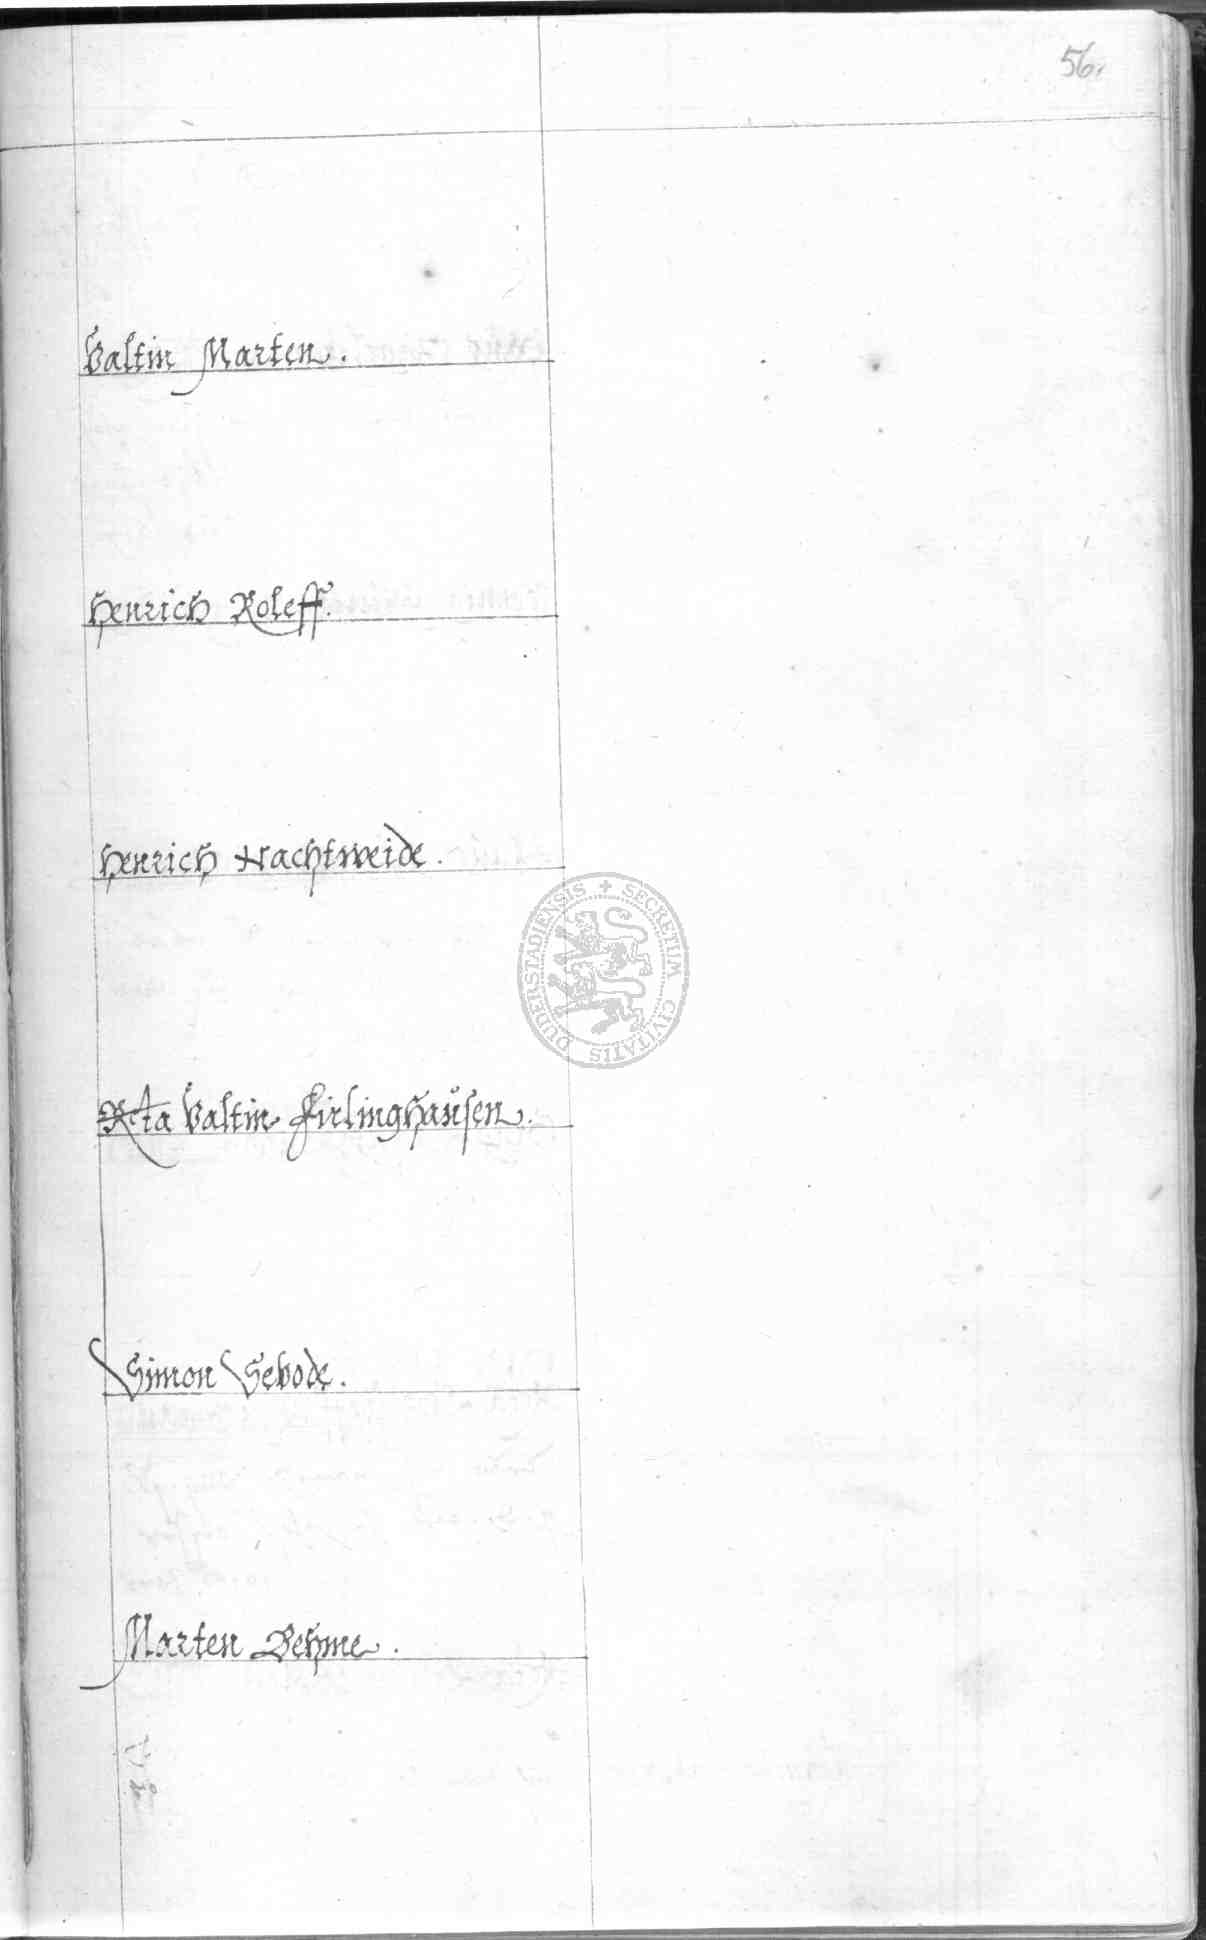 56.
Valtin Marten.
Henrich Roleff.
Henrich Nachtweide.
Rta Valtin Firlinghausen.
Simon Sebode.
Marten Behme.
SECRETUM CIVITATIS DUDERSTADIENSIS